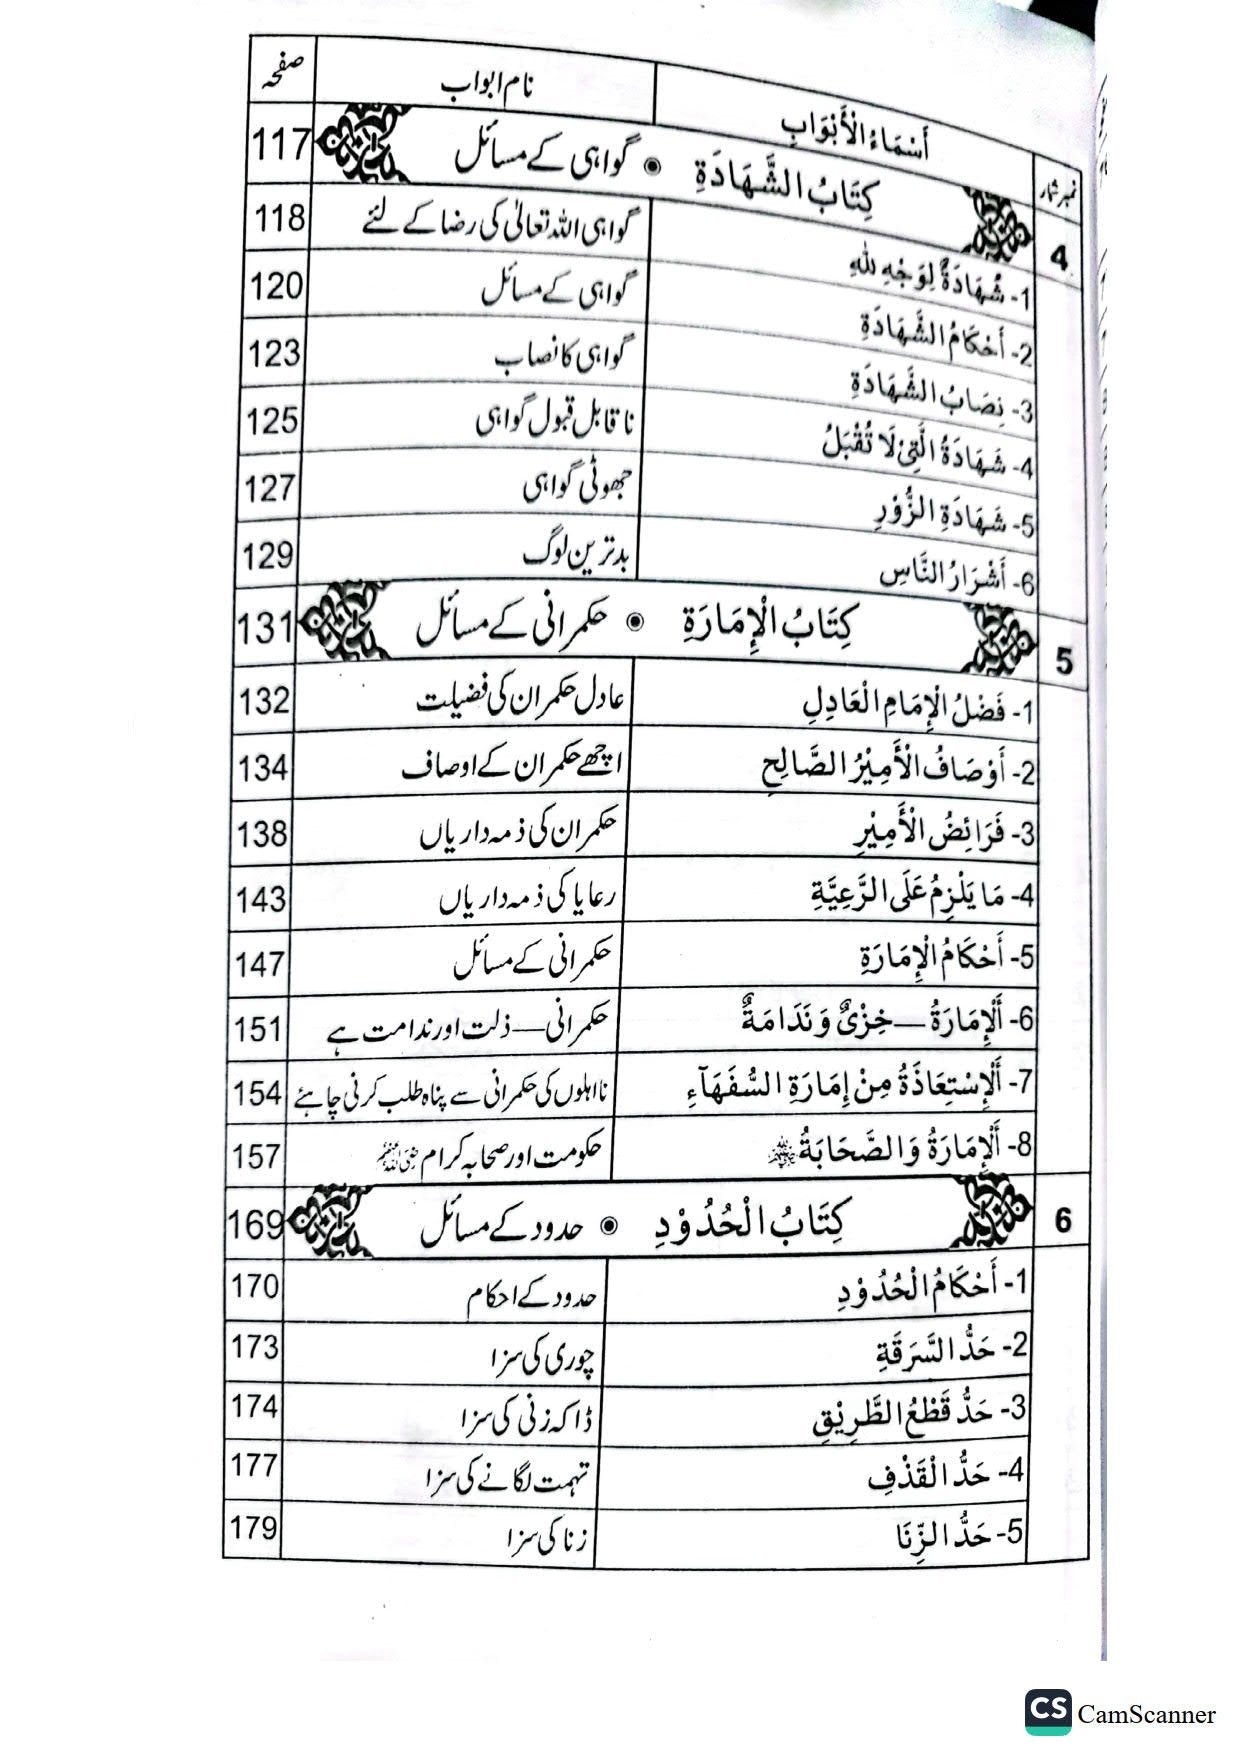 نمبر شمار أَسْمَاءُ الْأَبْوَابِ نام ابواب صفحہ
4 كِتَابُ الشَّهَادَةِ ◉ گواہی کے مسائل 117
1- شَهَادَةٌ لِوَجْهِ للهِ گواہی اللہ تعالیٰ کی رضا کے لئے 118
2- أَحْكَامُ الشَّهَادَةِ گواہی کے مسائل 120
3- نِصَابُ الشَّهَادَةِ گواہی کا نصاب 123
4- شَهَادَةُ الَّتِيْ لَا تُقْبَلُ ناقابل قبول گواہی 125
5- شَهَادَةِ الزُّوْرِ جھوٹی گواہی 127
6- أَشْرَارُ النَّاسِ بدترین لوگ 129
5 كِتَابُ الْإِمَارَةِ ◉ حکمرانی کے مسائل 131
1- فَضْلُ الْإِمَامِ الْعَادِلِ عادل حکمران کی فضیلت 132
2- أَوْصَافُ الْأَمِيْرُ الصَّالِحِ اچھے حکمران کے اوصاف 134
3- فَرَائِضُ الْأَمِيْرِ حکمران کی ذمہ داریاں 138
4- مَا يَلْزِمُ عَلَى الرَّعِيَّةِ رعایا کی ذمہ داریاں 143
5- أَحْكَامُ الْإِمَارَةِ حکمرانی کے مسائل 147
6- أَلْإِمَارَةُ — خِزْىٌ وَنَدَامَةٌ حکمرانی — ذلت اور ندامت ہے 151
7- أَلْإِسْتِعَاذَةُ مِنْ إِمَارَةِ السُّفَهَآءِ نااہلوں کی حکمرانی سے پناہ طلب کرنی چاہئے 154
8- أَلْإِمَارَةُ وَالصَّحَابَةُ ﷡ حکومت اور صحابہ کرام ﷡ 157
6 كِتَابُ الْحُدُوْدِ ◉ حدود کے مسائل 169
1- أَحْكَامُ الْحُدُوْدِ حدود کے احکام 170
2- حَدُّ السَّرَقَةِ چوری کی سزا 173
3- حَدُّ قَطْعُ الطَّرِيْقِ ڈاکہ زنی کی سزا 174
4- حَدُّ الْقَذْفِ تہمت لگانے کی سزا 177
5- حَدُّ الزِّنَا زنا کی سزا 179
CS CamScanner